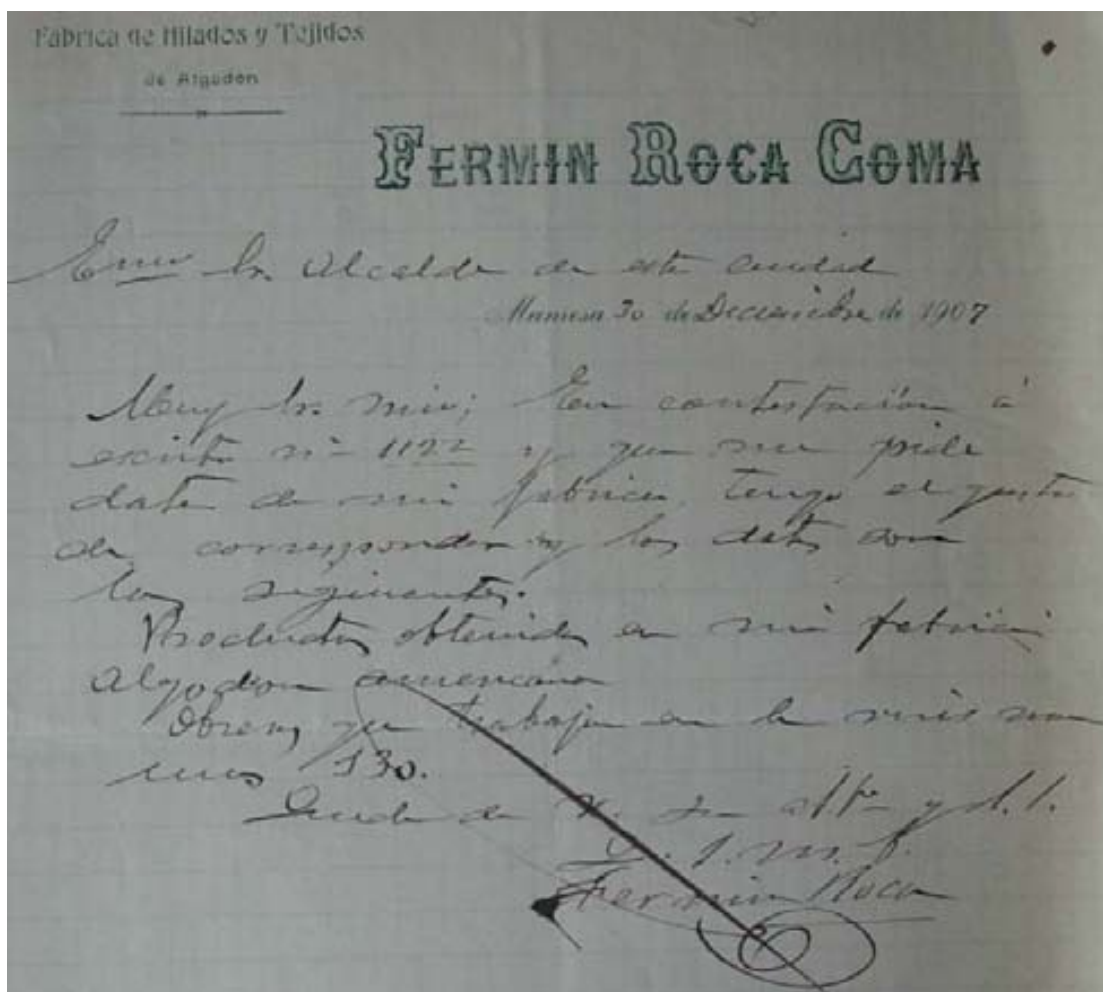 Fábrica de Hilados y Tejidos
de Algodón
FERMIN ROCA COMA
Sr. Alcalde de esta ciudad
Manresa 30 de Deciembre de 1907
Muy Sr. mio; En contestación á
escrito nº 1122 y que me pide
datos de mi fabrica, tengo el gusto
de corresponder y los datos son
los siguientes.
Productos obtenidos en mi fabrica
algodon americano
Obreros que trabajan en la misma son
unos 130.
Queda de V. su att. y S. S.
Q. S. M. B.
Fermin Roca